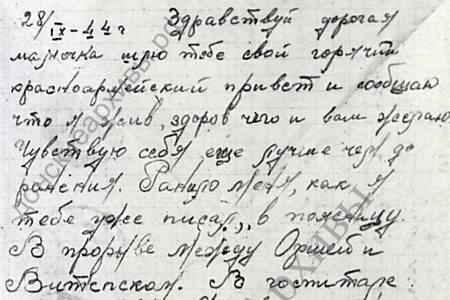 28/IX-44г Здравствуй дорогая
мамочка шлю тебе свой горячий
красноармейский привет и сообщаю
что я жив, здоров чего и вам желаю
Чувствую себя еще лучше чем до
ранения. Ранило меня, как я
тебе уже писал, в поясницу.
В прорыве между Оршей и
Витепском. В госпитале